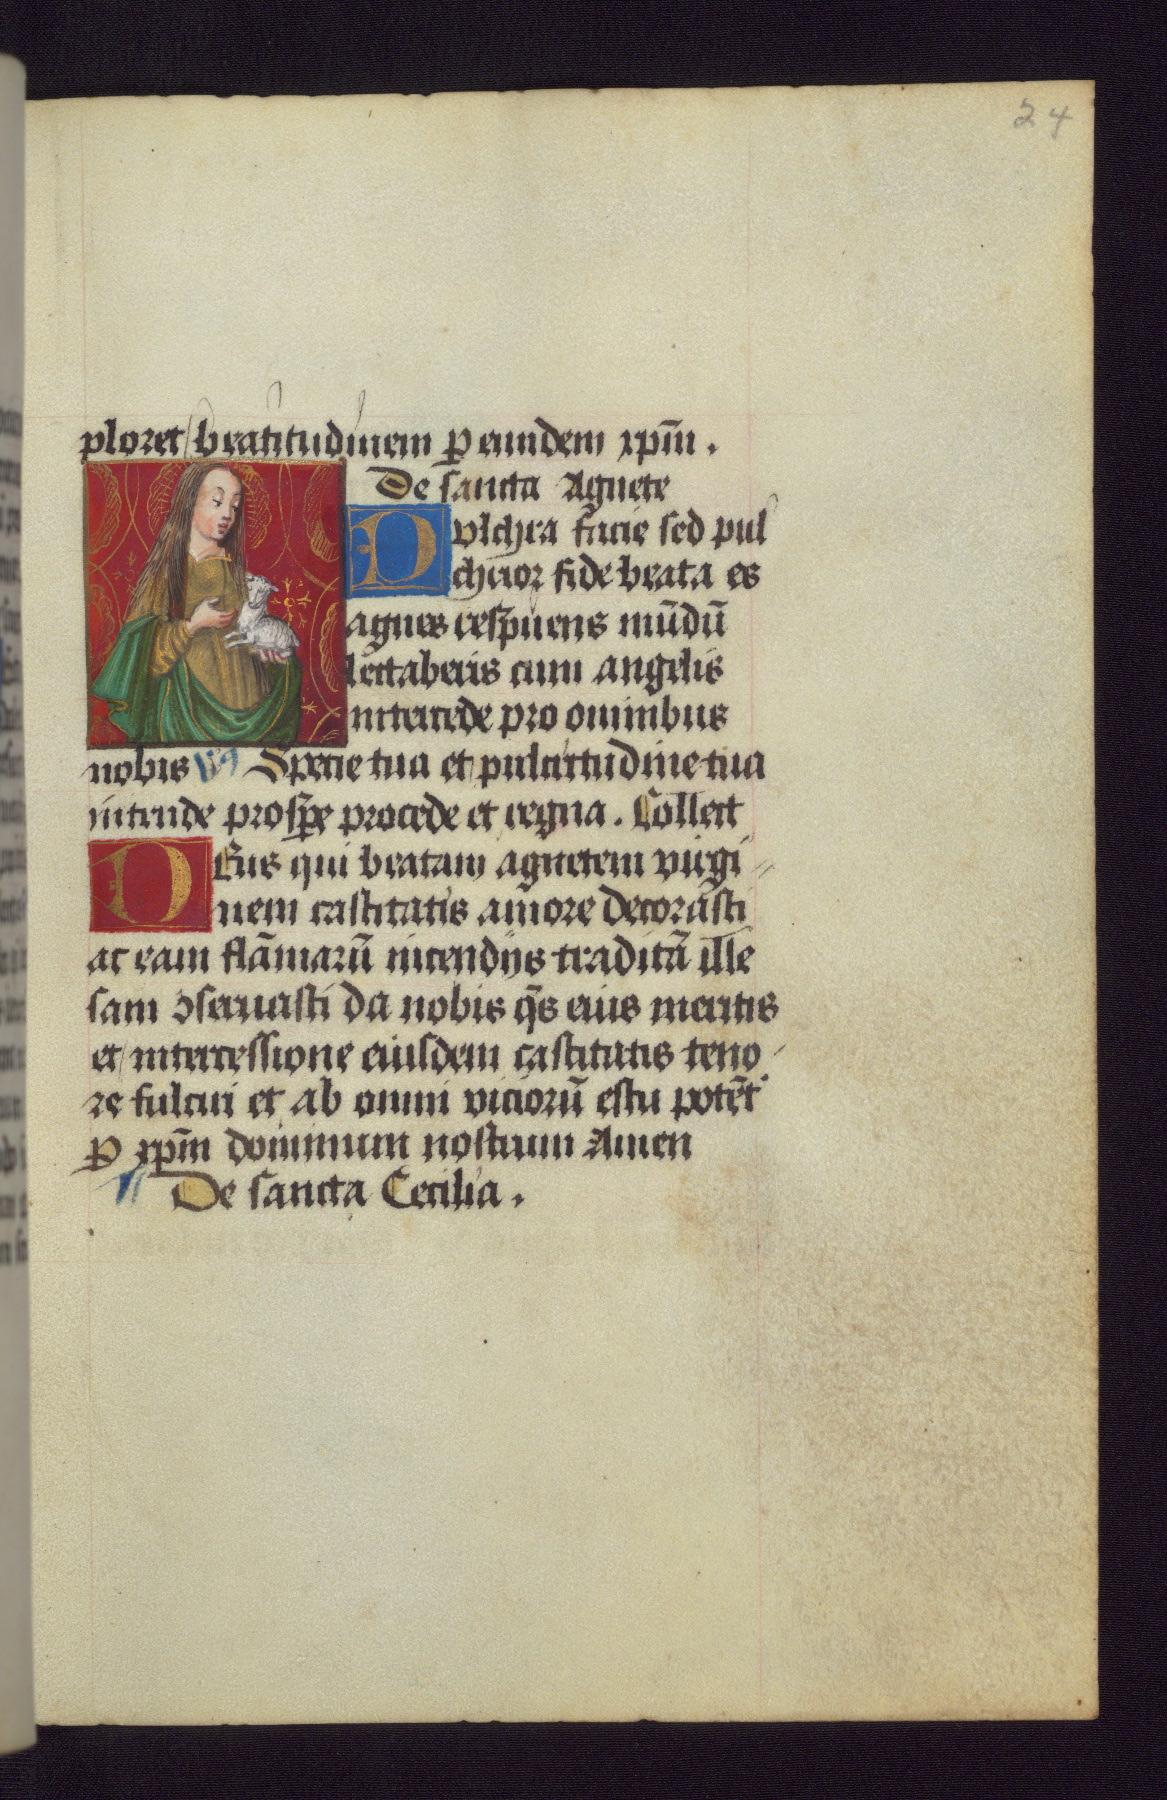 24
ploret beatitudinem ꝑ eundem xp̄m .
De sancta Agnete
Pulchra facie sed pul
chrior fide beata es
agnes respuens mūdū
letaberis cum angelis
intercede pro omnibus
nobis Vꝰ Specie tua et pulcritudine tua
intende prosꝑe procede et regna . Collect
DEus qui beatam agnetem virgi
nem castitatis amore decorasti
ac eam flāmarū incendijs traditā ille
sam ↄseruasti da nobis q̄s eius meritis
et intercessione eiusdem castitatis teno
re fulciri et ab omni viciorū estu potēt
ꝑ xp̄m dominum nostrum Amen
De sancta Cecilia .